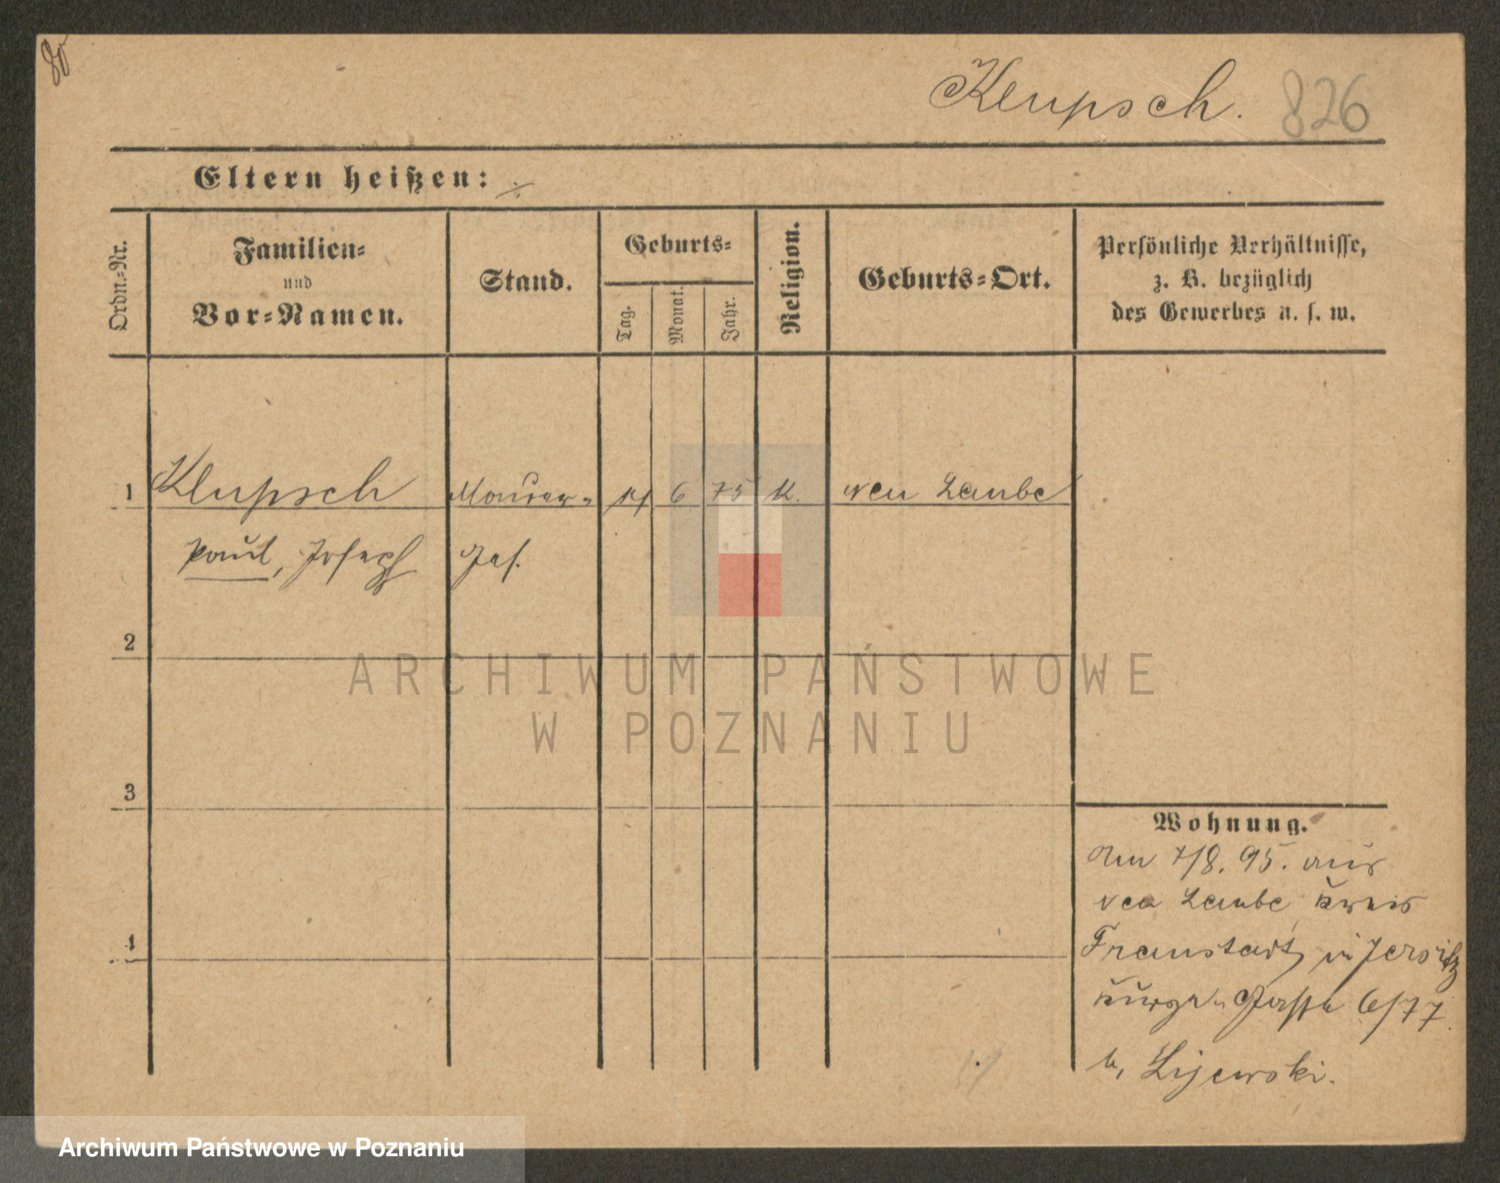 Klupsch. 826
Eltern heißen: ./.
Ordn.-Nr.
Familien-
und
Vor-Namen.
Stand.
Geburts-
Tag.
Monat.
Jahr.
Religion.
Geburts-Ort.
Persönliche Verhältnisse,
z. B. bezüglich
des Gewerbes u. s. w.
1 Klupsch Maurer- 6 75 K. Neu Laube
Paul, Joseph Ges.
2
3
4
Wohnung.
Am 7/8. 95. aus
Neu Laube, Kreis
Fraustadt, in Jersitz
Kurze- 6/77.
b. Lijewski.
ARCHIWUM PAŃSTWOWE
W POZNANIU
Archiwum Państwowe w Poznaniu